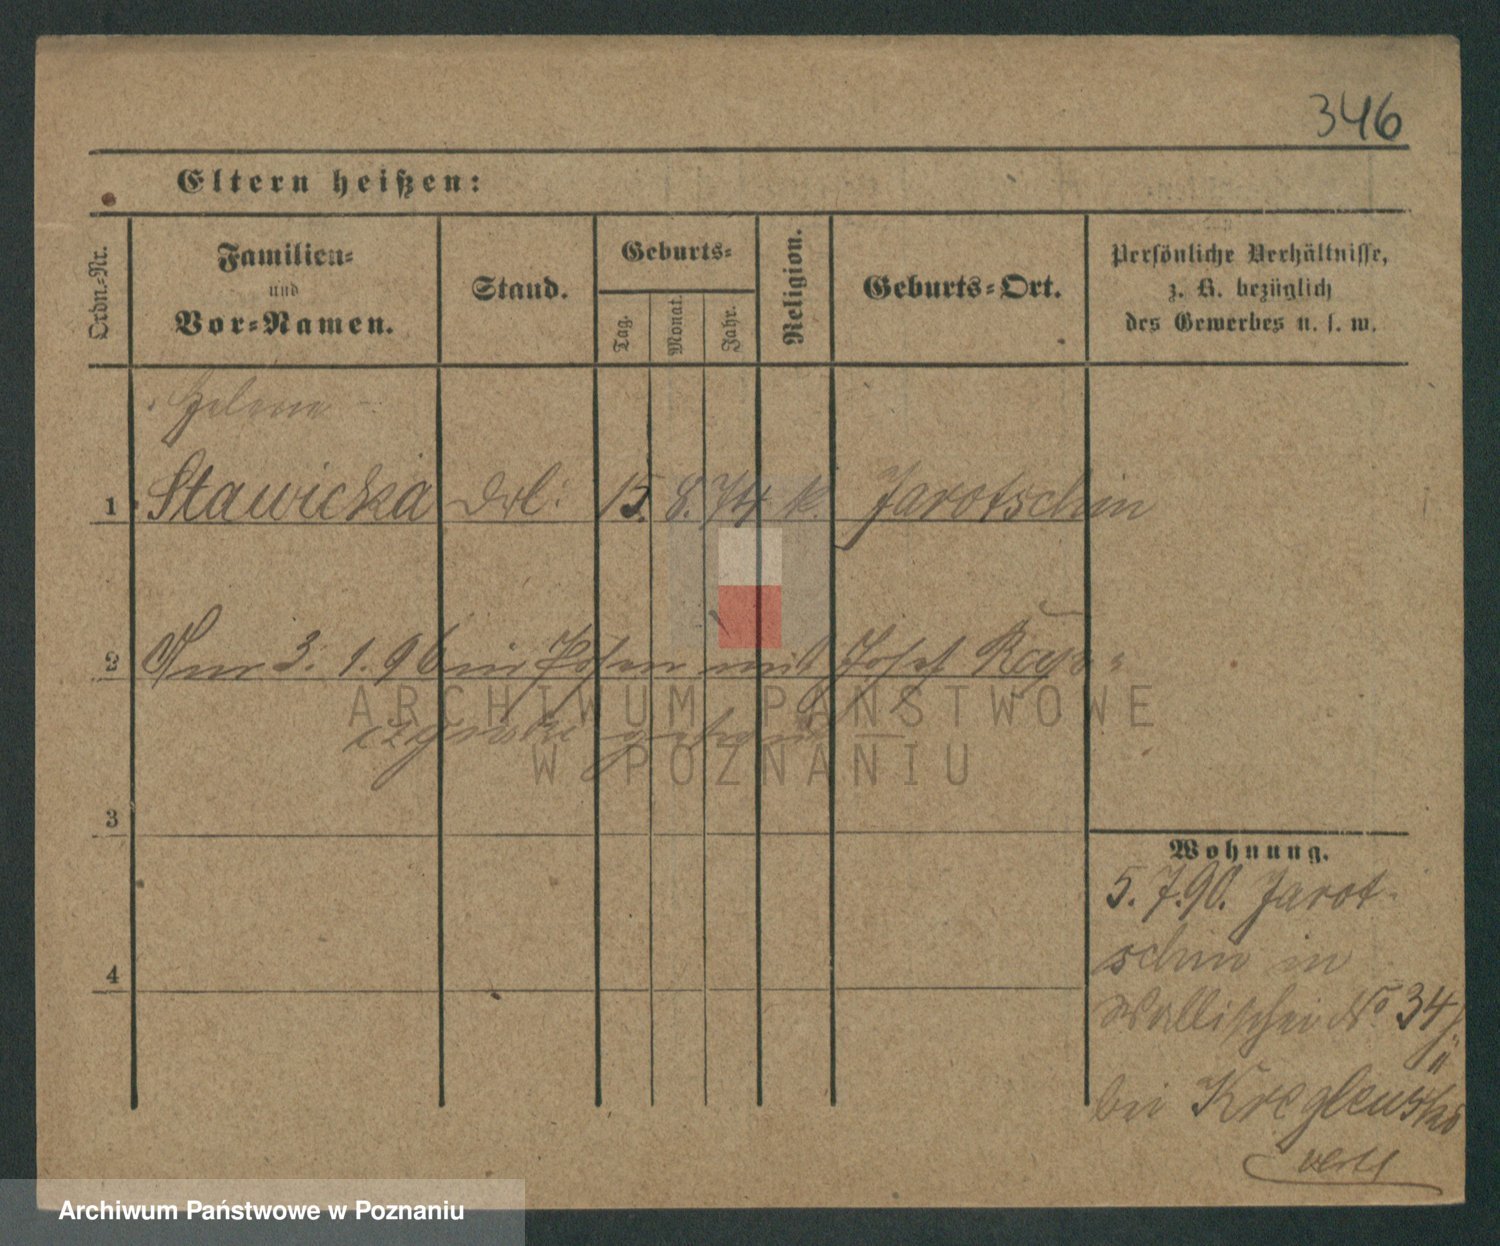 346
Eltern heißen:
Ordn.-Nr.
Familien-
und
Vor-Namen.
Stand.
Geburts-
Tag.
Monat.
Jahr.
Religion.
Geburts-Ort.
Persönliche Verhältnisse,
z. B. bezüglich
des Gewerbes u. s. w.
Helene
1 Stawicka 15. 8. 74 k. Jarotschin
2 Am 3. 1. 96 in Posen mit Josef
3
Wohnung.
5. 7. 90. Jarot-
schin in
4
Wallischei No 34/
bei Kreglewski
ARCHIWUM PAŃSTWOWE
W POZNANIU
Archiwum Państwowe w Poznaniu